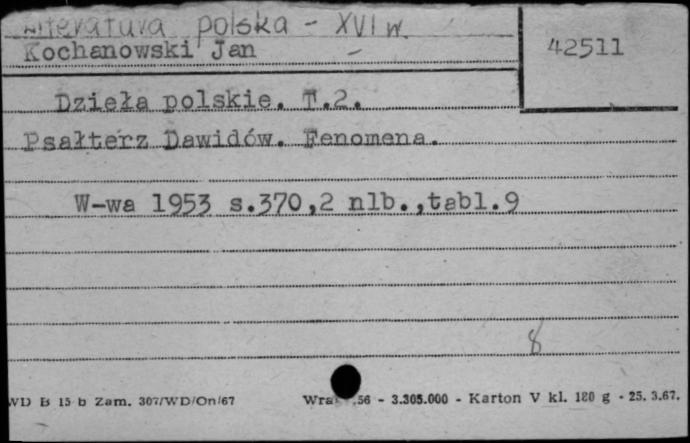 Literatura polska - XVI w.
Kochanowski Jan -
42511
Dzieła polskie. T.2.
Psałterz Dawidów. Fenomena.
W-wa 1953 s.370,2 nlb.,tabl.9
8
WD B 15 b Zam. 307/WD/On/67
56 - 3.305.000 - Karton V kl. 180 g - 25. 3.67.